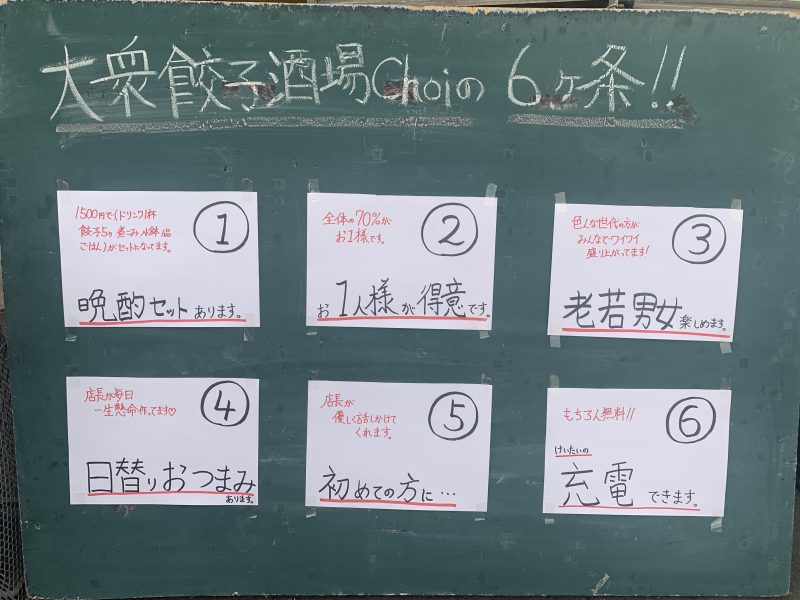 大衆餃子酒場Choiの6ヶ条!!
①
1500円で(ドリンク1杯
餃子5ヶ 煮こみ 小鉢1品
ごはん)がセットになってます。
晩酌セットあります。
②
全体の70%が
お1様です。
お1人様が得意です。
③
色んな世代の方が
みんなでワイワイ
盛り上がってます!
老若男女楽しめます。
④
店長が毎日
一生懸命作ってます♡
日替りおつまみ
あります。
⑤
店長が
優しく話しかけて
くれます。
初めての方に…
⑥
もちろん無料!!
けいたいの
充電できます。